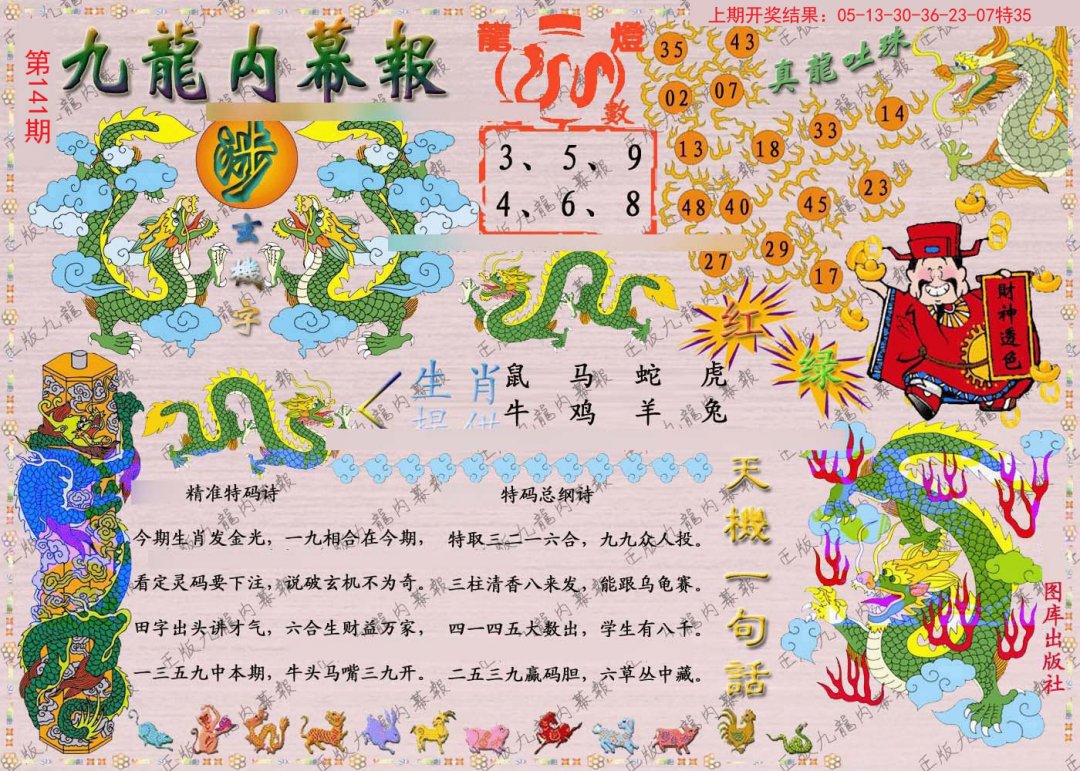 上期开奖结果：05-13-30-36-23-07特35
第141期
九龍内幕報
龍燈
數
真龍吐珠
35 43
02 07
14
33
13 18
23
48 40 45
29
27 17
3、5、9
4、6、8
玄機字
红
绿
財神透色
生肖
提供
鼠 马 蛇 虎
牛 鸡 羊 兔
精准特码诗
今期生肖发金光，一九相合在今期，
看定灵码要下注，说破玄机不为奇。
田字出头讲才气，六合生财益万家，
一三五九中本期，牛头马嘴三九开。
特码总纲诗
特取三二一六合，九九众人投。
三柱清香八来发，能跟乌龟赛。
四一四五大数出，学生有八十。
二五三九赢码胆，六草丛中藏。
天機一句話
图库出版社
正版九龍内幕報